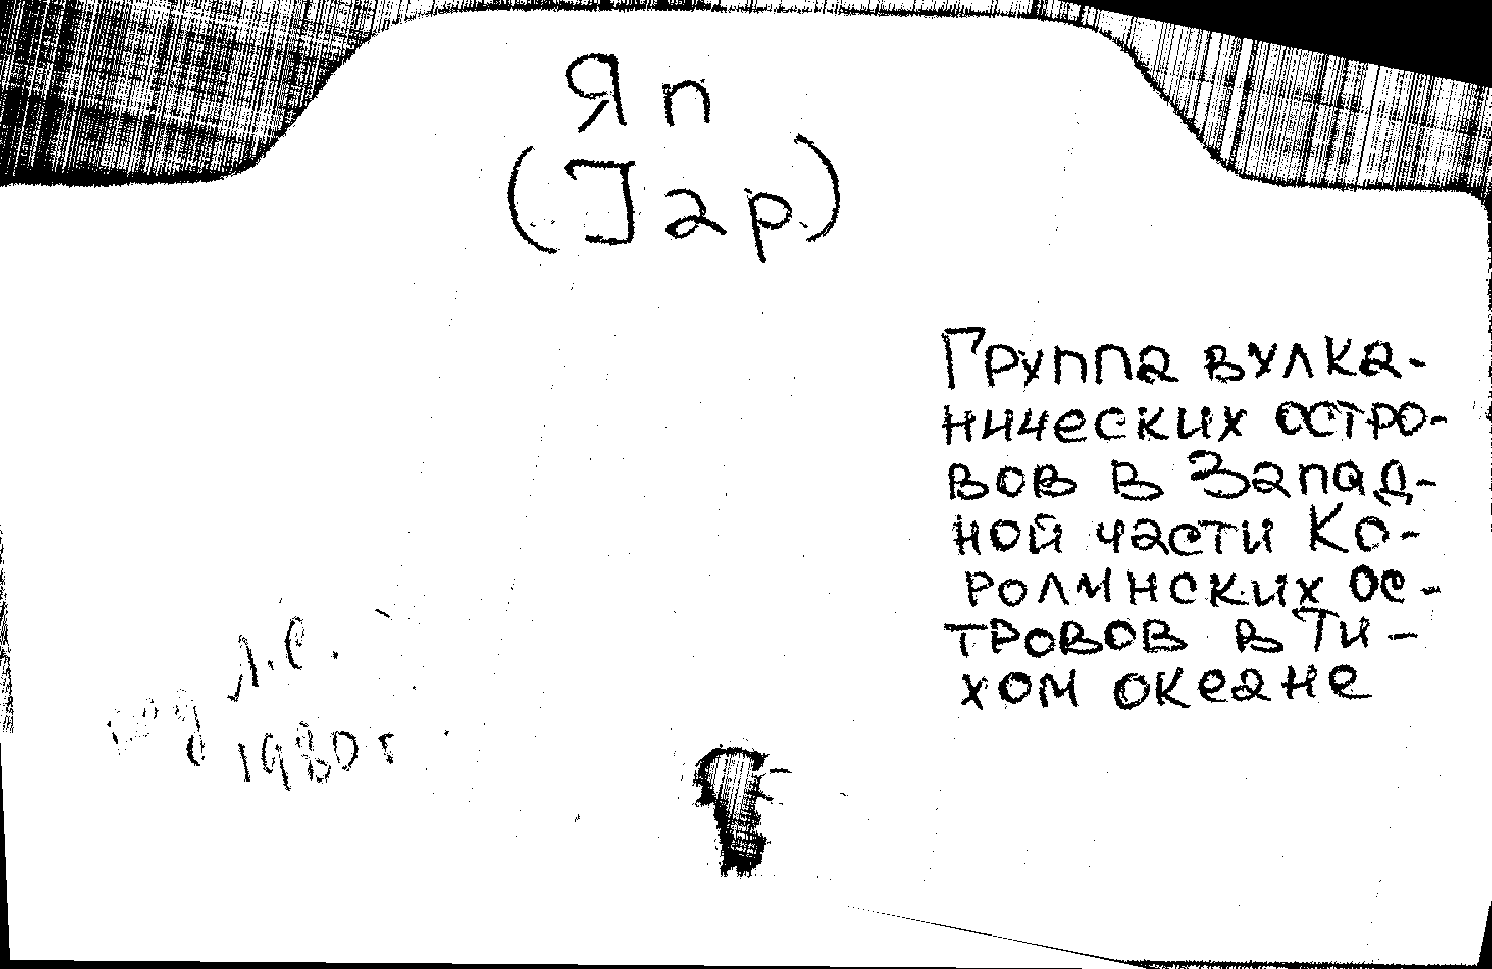 Яп
(Јар)
Группа вулка-
нических остро-
вов в Запад-
ной части Ка-
ролинских ос-
тровов в Ти-
хом океане
л.с.
1980 г